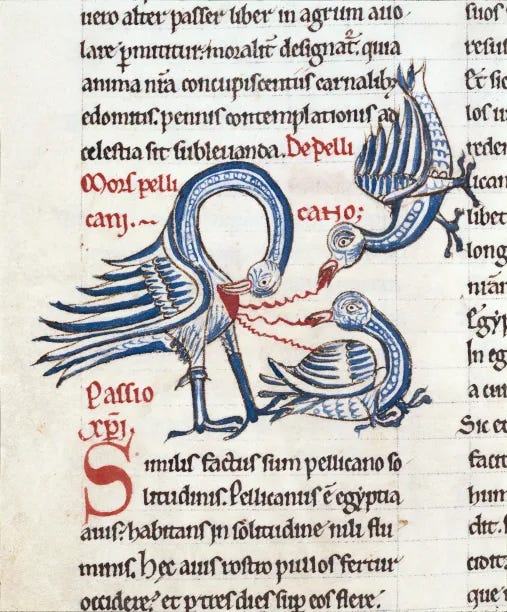 uero alter passer liber in agrum auo
lare p̄mittitur. moralit̄ designat᷒. quia
anima nr̄a concupiscentiis carnalib;
edomitis. pennis contemplationis ad
celestia sit subleuanda. De pelli
Mors pelli
cani. cano;
Passio
xp̄i.
Similis factus sum pellicano so
litudinis. Pellicanus ē egyptia
auis. habitans in solitudine nili flu
minis. Hec auis rostro pullos fertur
occidere. et p tres dies sup eos flere.
suos
Et sic
los
lican
libet
long
In eg
a cui
Sic et
facit
hum
dit.
que